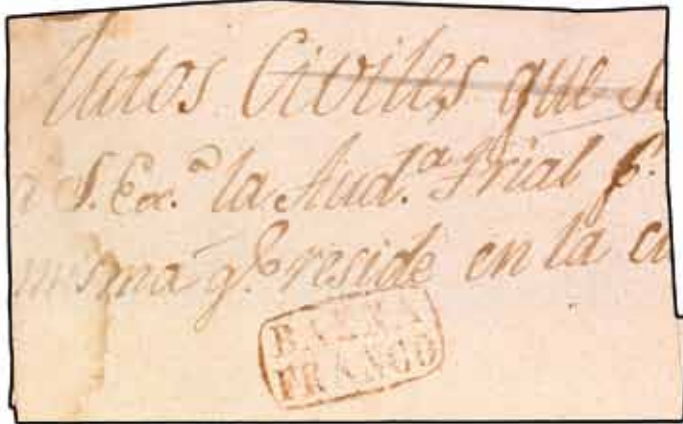 Autos Civiles que se
a S. Ex.ª la Aud.ª Prial p.
misma q.e reside en la ci
FRANCO